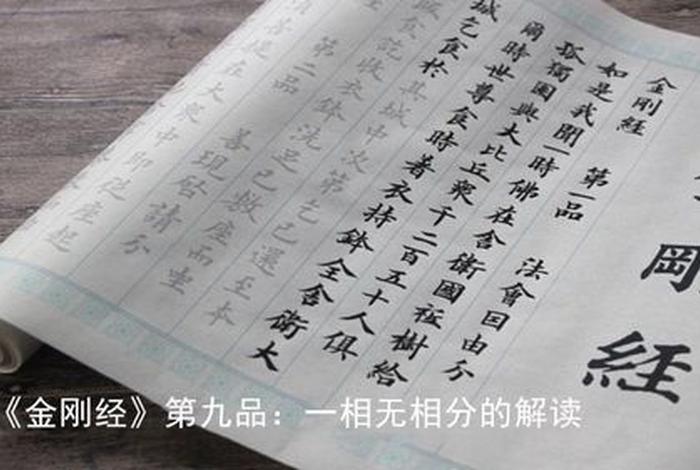 剛經
金剛經 第一品 法會因由分
如是我聞一時佛在舍衛國祗樹給
孤獨園與大比丘眾千二百五十人俱
爾時世尊食時著衣持鉢入舍衛大
城乞食於其城中次第乞已還至本
飯食訖收衣鉢洗足已敷座而坐
第二品 善現啟請分
菩提在大眾中即從座起
《金刚经》第九品：一相无相分的解读